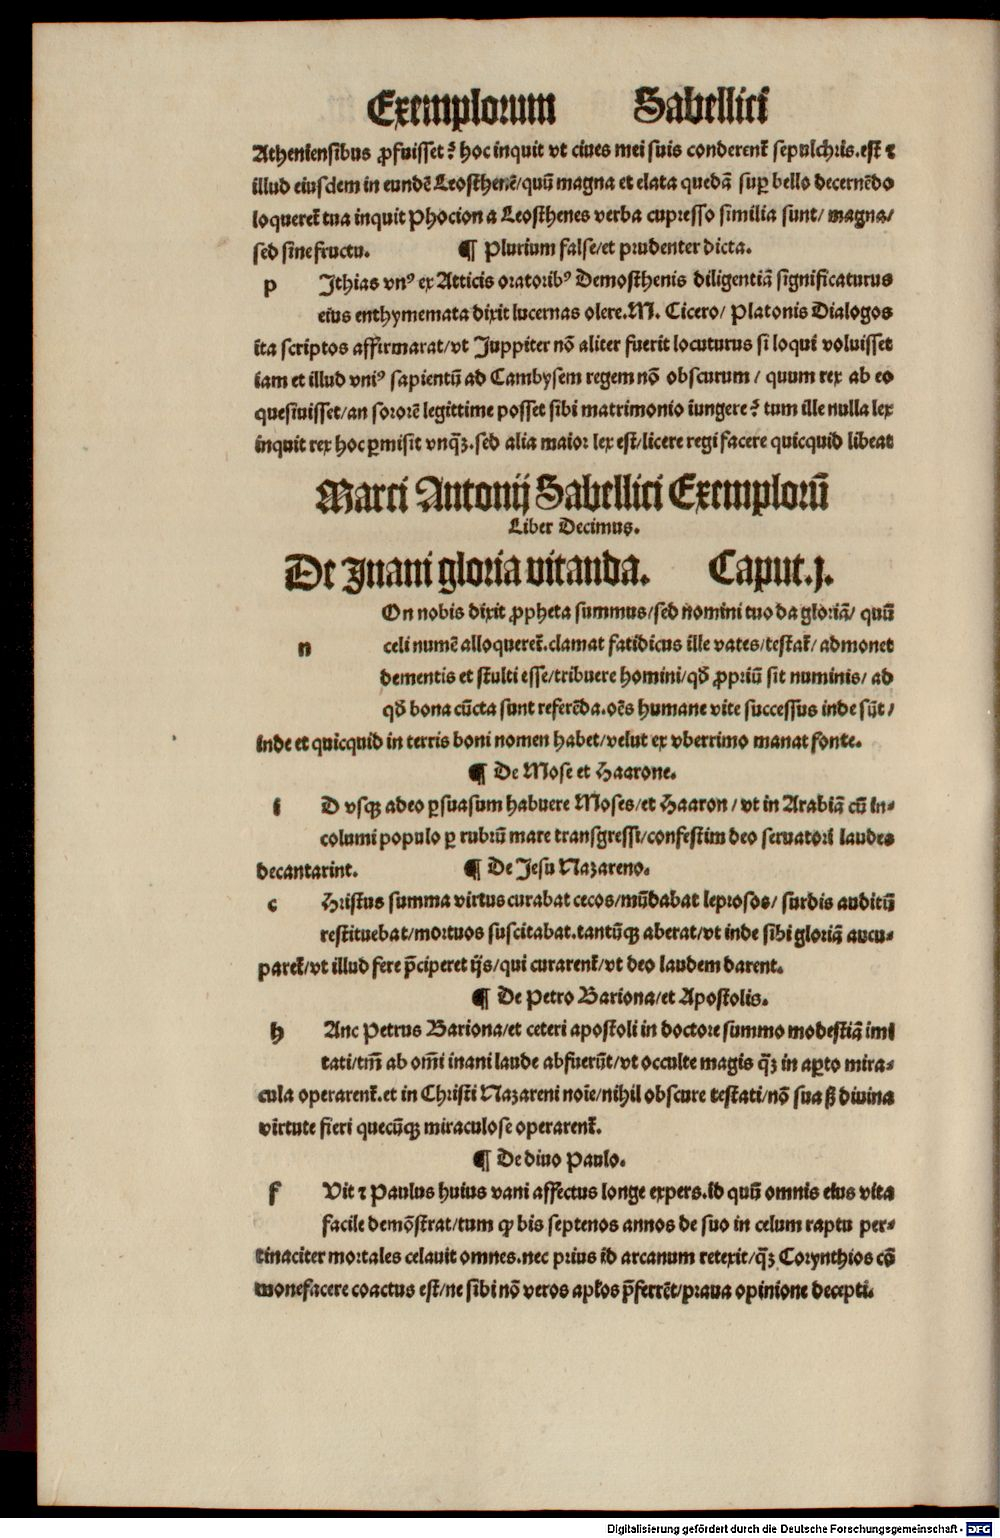 Exemplorum Sabellici
Atheniensibus ꝓfuisset? hoc inquit vt ciues mei suis conderent᷑ sepulchris. est ⁊
illud eiusdem in eundē Leosthenē/quū magna et elata quedā suꝑ bello decernēdo
loqueret᷑ tua inquit Phocion a Leosthenes verba cupresso similia sunt/ magna/
sed sine fructu. ¶ Plurium false/et prudenter dicta.
p Ithias vnꝰ ex Atticis oratoribꝰ Demosthenis diligentiā significaturus
eius enthymemata dixit lucernas olere. M. Cicero/ Platonis Dialogos
ita scriptos affirmarat/vt Juppiter nō aliter fuerit locuturus si loqui voluisset
iam et illud vniꝰ sapientū ad Cambysem regem nō obscurum/ quum rex ab eo
quesiuisset/an sororē legittime posset sibi matrimonio iungere? tum ille nulla lex
inquit rex hoc ꝑmisit vnqꝫ. sed alia maior lex est/licere regi facere quicquid libeat
Marci Antonij Sabellici Exemplorū
Liber Decimus.
De Inani gloria vitanda. Caput. j.
n On nobis dixit ꝓpheta summus/sed nomini tuo da gloriā/ quū
celi numē alloqueret᷑. clamat fatidicus ille vates/testat᷑/ admonet
dementis et stulti esse/tribuere homini/qđ ꝓpriū sit numinis/ ad
qđ bona cūcta sunt referēda. oēs humane vite successus inde sūt/
inde et quicquid in terris boni nomen habet/velut ex vberrimo manat fonte.
¶ De Mose et Haarone.
i D vsqꝫ adeo ꝑsuasum habuere Moses/et Haaron/ vt in Arabiā cū in-
columi populo ꝑ rubrū mare transgressi/confestim deo seruatori laudes
decantarint. ¶ De Jesu Nazareno.
c Hristus summa virtus curabat cecos/mūdabat leprosos/ surdis auditū
restituebat/mortuos suscitabat. tantūqꝫ aberat/vt inde sibi gloriā aucu-
paret᷑/vt illud fere p̄ciperet ijs/qui curarent᷑/vt deo laudem darent.
¶ De Petro Bariona/et Apostolis.
h Anc Petrus Bariona/et ceteri apostoli in doctore summo modestiā imi
tati/tm̄ ab om̄i inani laude abfuerūt/vt occulte magis qꝫ̄ in aꝑto mira-
cula operarent᷑. et in Christi Nazareni noīe/nihil obscure testati/nō sua ß diuina
virtute fieri quecūqꝫ miraculose operarent᷑.
¶ De diuo Paulo.
f Vit ⁊ Paulus huius vani affectus longe expers. id quū omnis eius vita
facile demōstrat/tum ꝙ bis septenos annos de suo in celum raptu per-
tinaciter mortales celauit omnes. nec prius id arcanum retexit/qꝫ̄ Corynthios cō
monefacere coactus est/ne sibi nō veros apl̄os p̄ferrēt/praua opinione decepti.
Digitalisierung gefördert durch die Deutsche Forschungsgemeinschaft - DFG